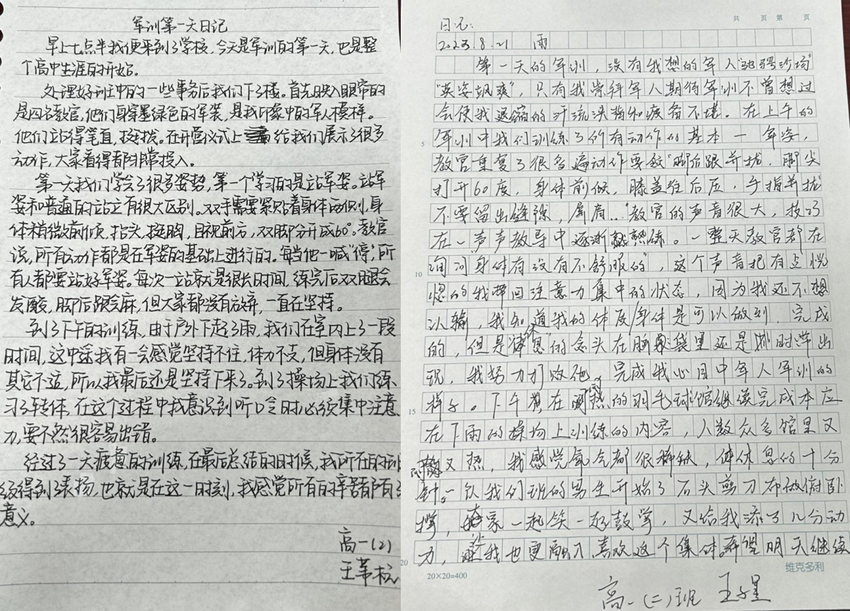 军训第一天日记
早上七点半我便来到了学校,今天是军训的第一天,也是整
个高中生涯的开始。
处理好班中的一些事务后我们下了楼。首先映入眼帘的
是四名教官,他们身穿墨绿色的军装,是我印象中的军人模样。
他们站得笔直,挺拔。在开营仪式上给我们展示了很多
动作,大家看得都非常投入。
第一天我们学会了很多姿势,第一个学习的是站军姿。站军
姿和普通的站立有很大区别。双手需要紧贴着身体两侧,身
体稍微前倾,抬头,挺胸,目视前方,双脚分开成60°。教官
说,所有动作都是在军姿的基础上进行的。每当他一喊“停”,所
有人都要站好军姿。每次一站就是很长时间,练完后双腿会
发酸,脚后跟会麻,但大家都没有放弃,一直在坚持。
到了下午的训练,由于户外下起了雨,我们在室内上了一段
时间,这中途我有一会感觉坚持不住,体力不支,但身体没有
其它不适,所以我最后还是坚持下来了。到了操场上我们练
习了转体,在这个过程中我意识到听口令时必须集中注意
力,要不然很容易出错。
经过了一天疲惫的训练,在最后总结的时候,我所在的班
级得到了表扬,也就是在这一时刻,我感觉所有的辛苦都有了
意义。
高一(2)
共 页 第 页
日记:
2023.8.21 雨
第一天的军训,没有我想的军人“驰骋沙场”
“英姿飒爽”,只有我觉得军人期待军训不曾想过
会使我退缩的汗流浃背和疲惫不堪。在上午的
军训中我们训练了所有动作的基本一军姿,
教官重复了很多遍动作要领“脚后跟并拢,脚尖
打开60度,身体前倾,膝盖往后压,手指并拢
不要留出缝隙,肩膀…”教官的声音很大,技巧
在一声声教导中逐渐熟练。一整天教官都在
询问身体有没有不舒服的,这个声音把有点恍
惚的我带回注意力集中的状态,因为我还不想
认输,我知道我的体质/身体是可以做到、完成
的,但是休息的念头在脑袋里还是时时浮出
现,我努力打败他,完成我心目中军人军训的
样子。下午在闷热的羽毛球馆继续完成本应
在下雨的操场上训练的内容,人数众多馆里又
闷又热,我感觉氧气都很稀缺,休息的十分
钟。一次我们班的男生开始了石头剪刀布做俯卧
撑,大家一起笑一起鼓掌,又给我添了几分动
力,让我也更融入、喜欢这个集体。希望明天继续
5
10
15
20
20×20=400
维克多利
高一(二)班